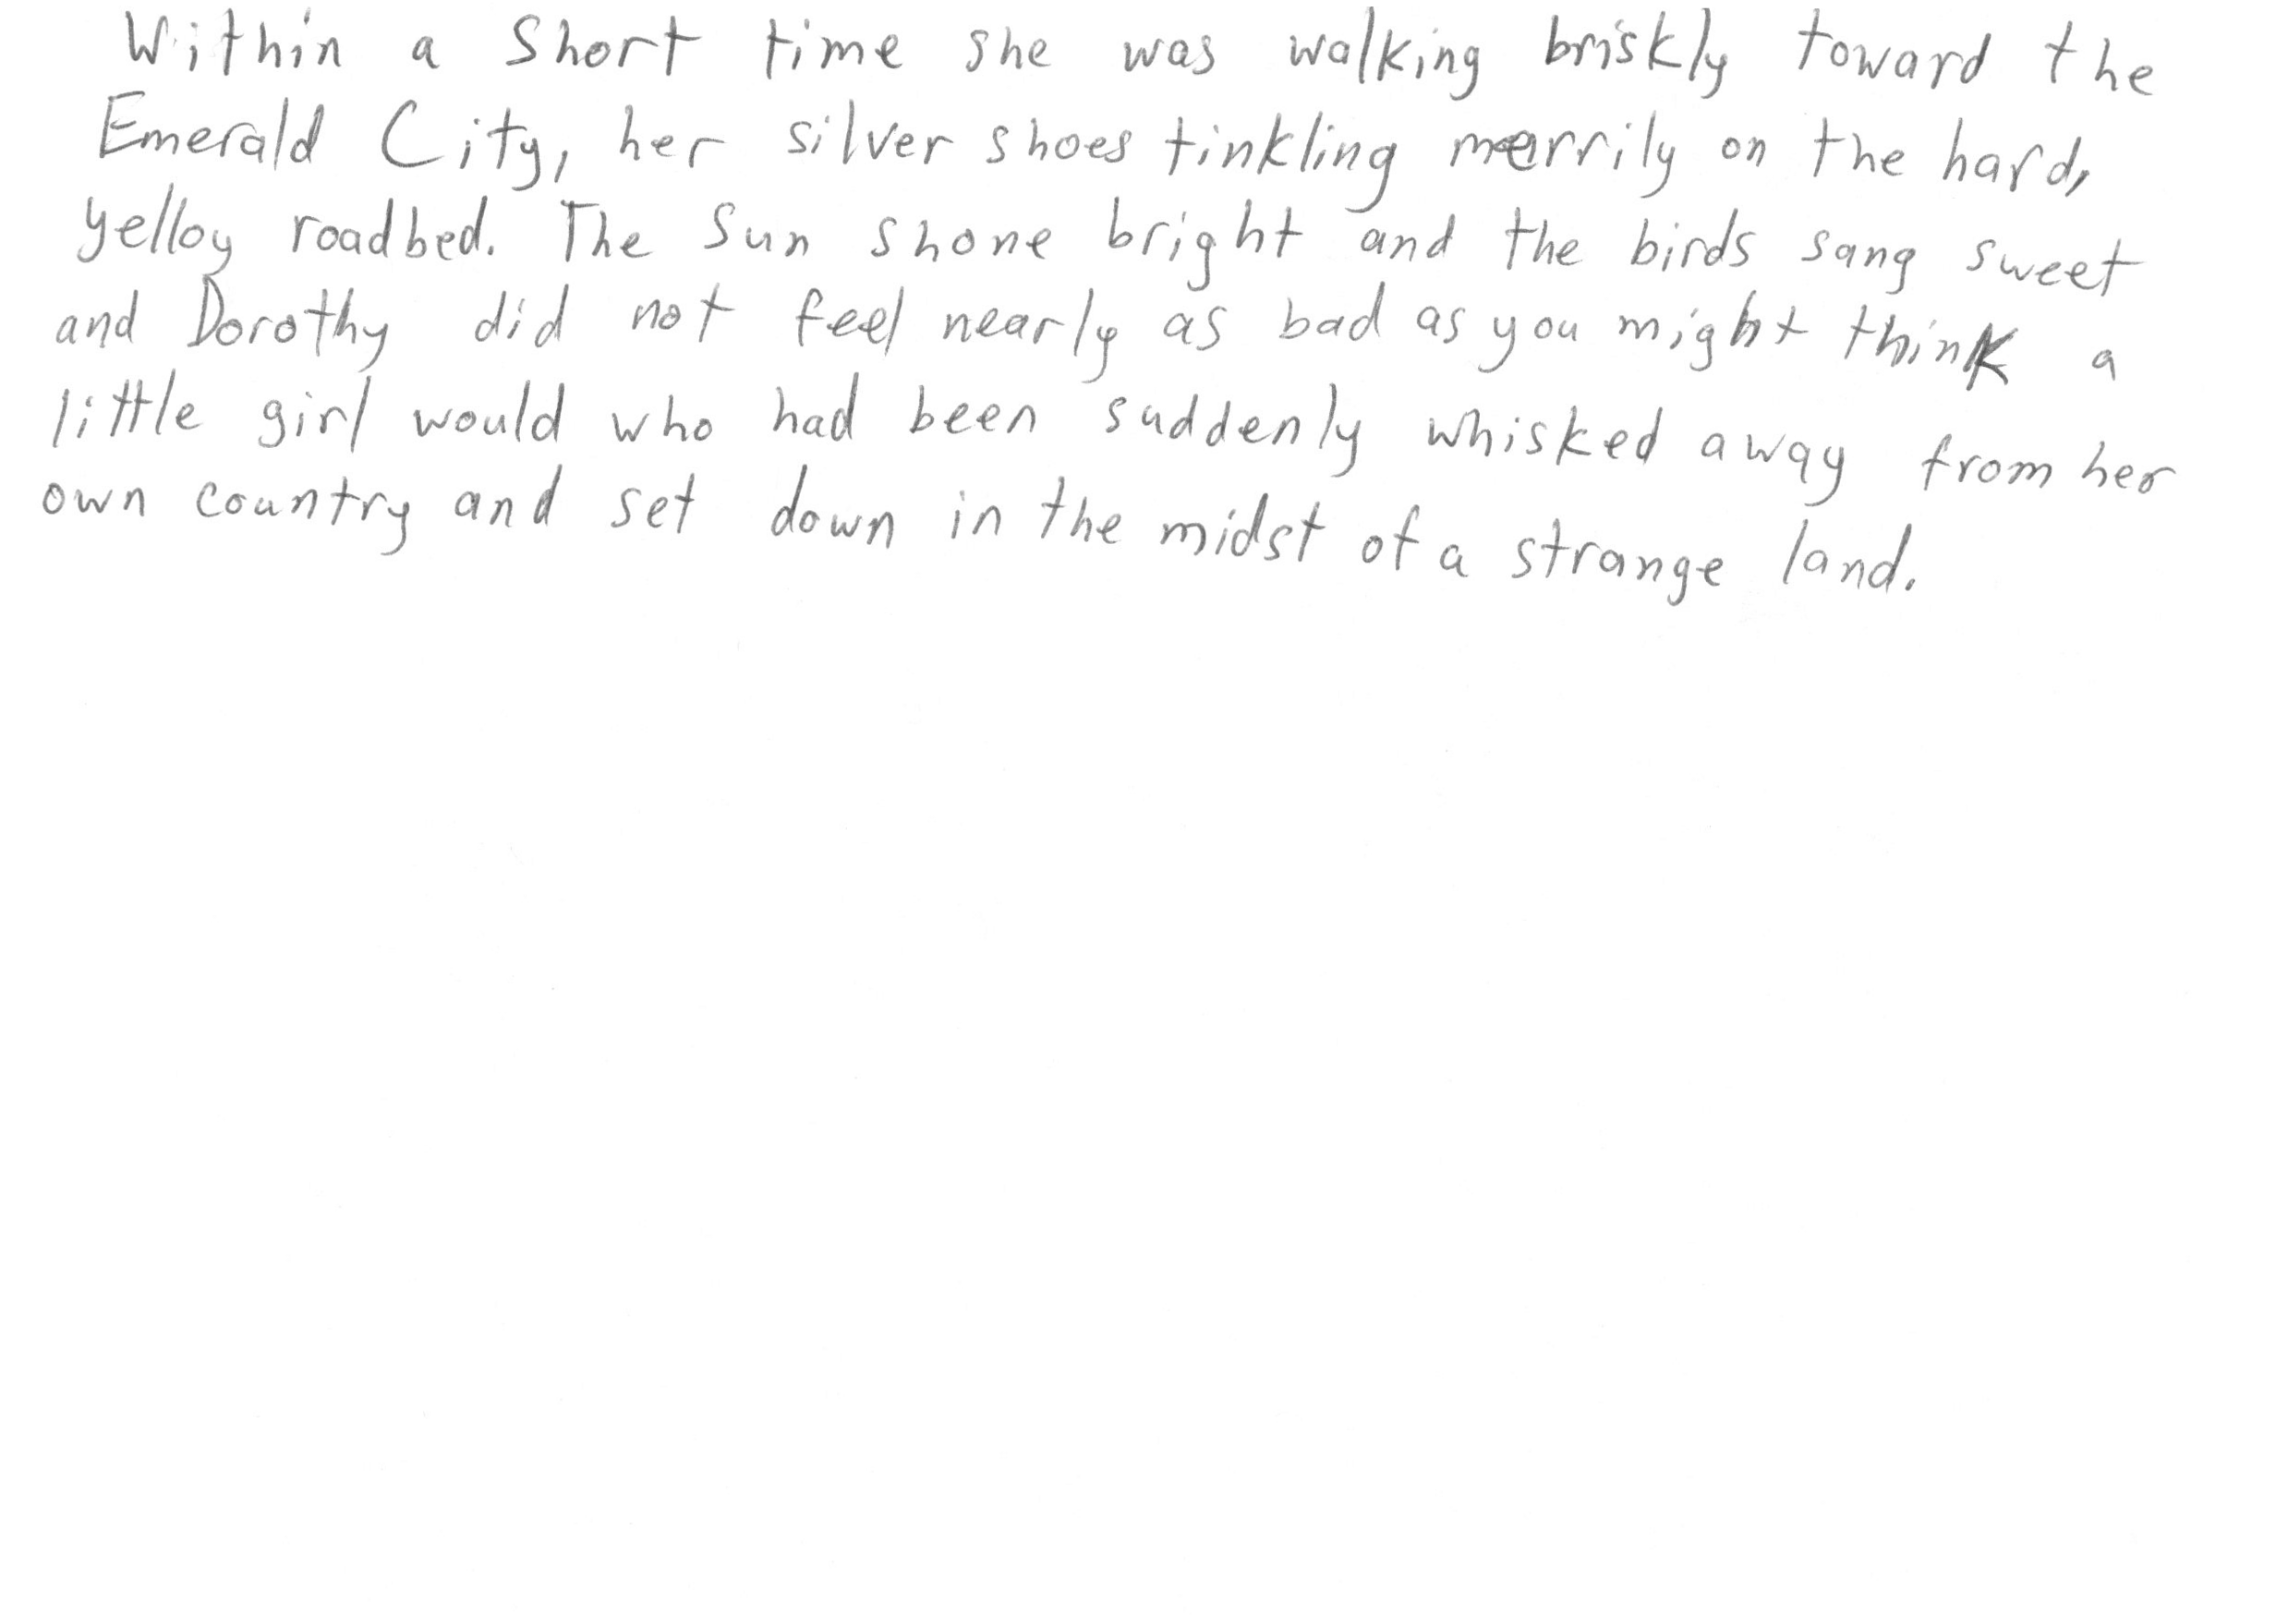 Within a short time she was walking briskly toward the
Emerald City, her silver shoes tinkling merrily on the hard,
yelloy roadbed. The sun shone bright and the birds sang sweet
and Dorothy did not feel nearly as bad as you might think a
little girl would who had been suddenly whisked away from her
own country and set down in the midst of a strange land.